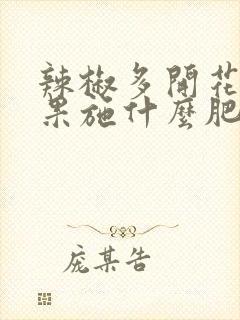 辣椒多開花
果施什麼肥
龐某告